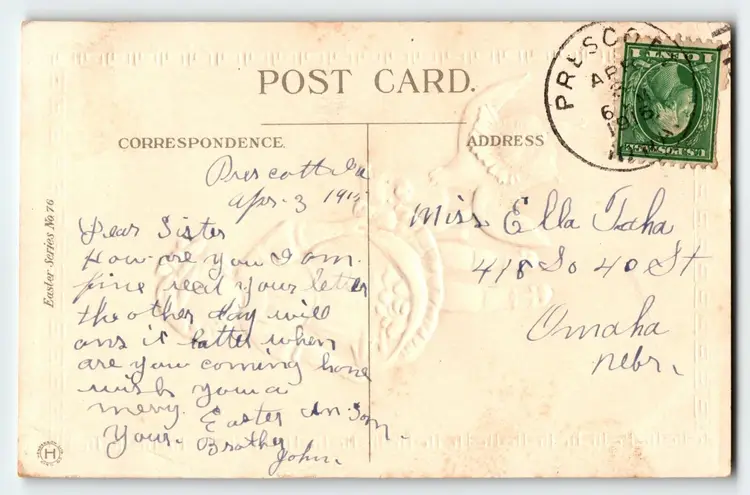 POST CARD.
CORRESPONDENCE.
ADDRESS
Easter Series No 76
PRESCO
AP
6
H
Prescott Ia
Apr. 3 191
Dear Sister
How are you I am.
fine recd your letter
the other day will
ans it latter when
are you coming home
wish you a
mery. Easter
Your. Brother
John.
Miss Ella Taha
418 So 40 St
Omaha
Nebr.